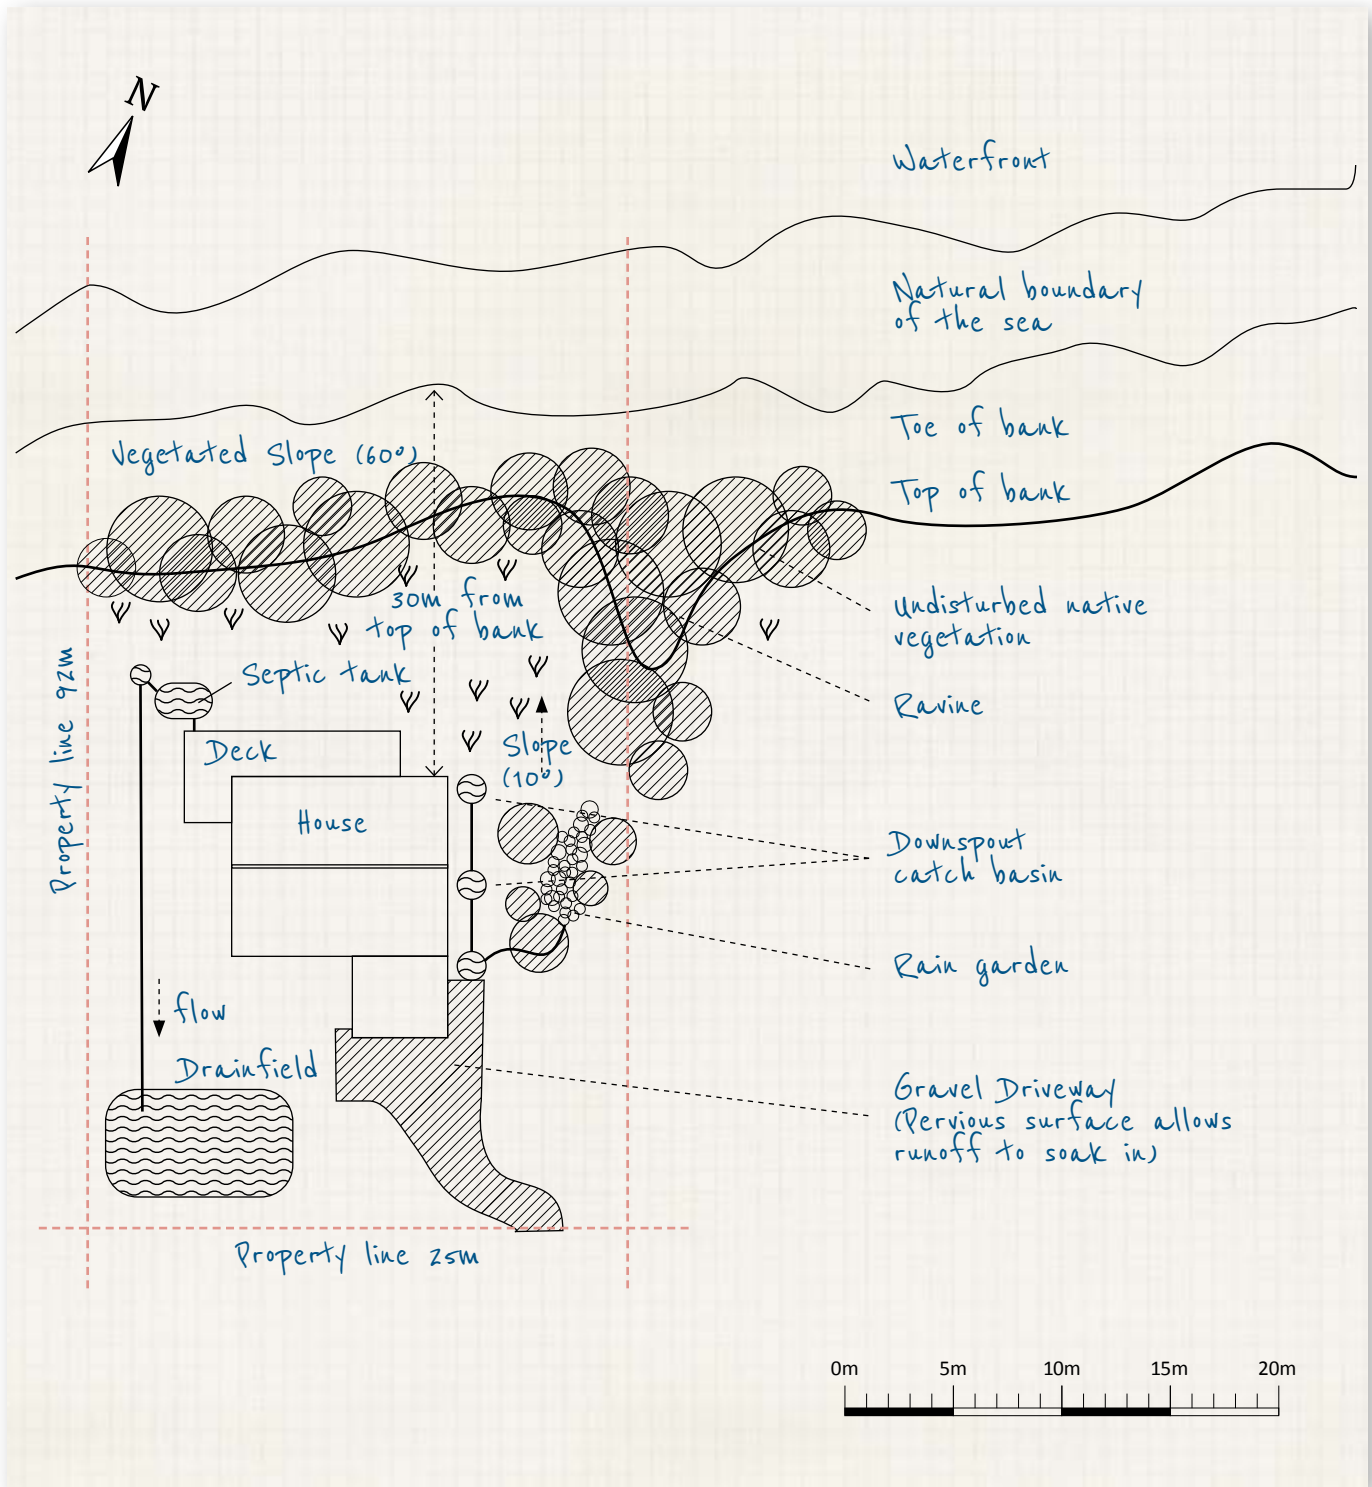 N
Waterfront
Natural boundary
of the sea
Toe of bank
Vegetated Slope (60°)
Top of bank
30m from
top of bank
Undisturbed native
vegetation
Septic tank
Ravine
Property line 92m
Deck
Slope
(10°)
House
Downspout
catch basin
Rain garden
flow
Drainfield
Gravel Driveway
(Pervious surface allows
runoff to soak in)
Property line 25m
0m 5m 10m 15m 20m